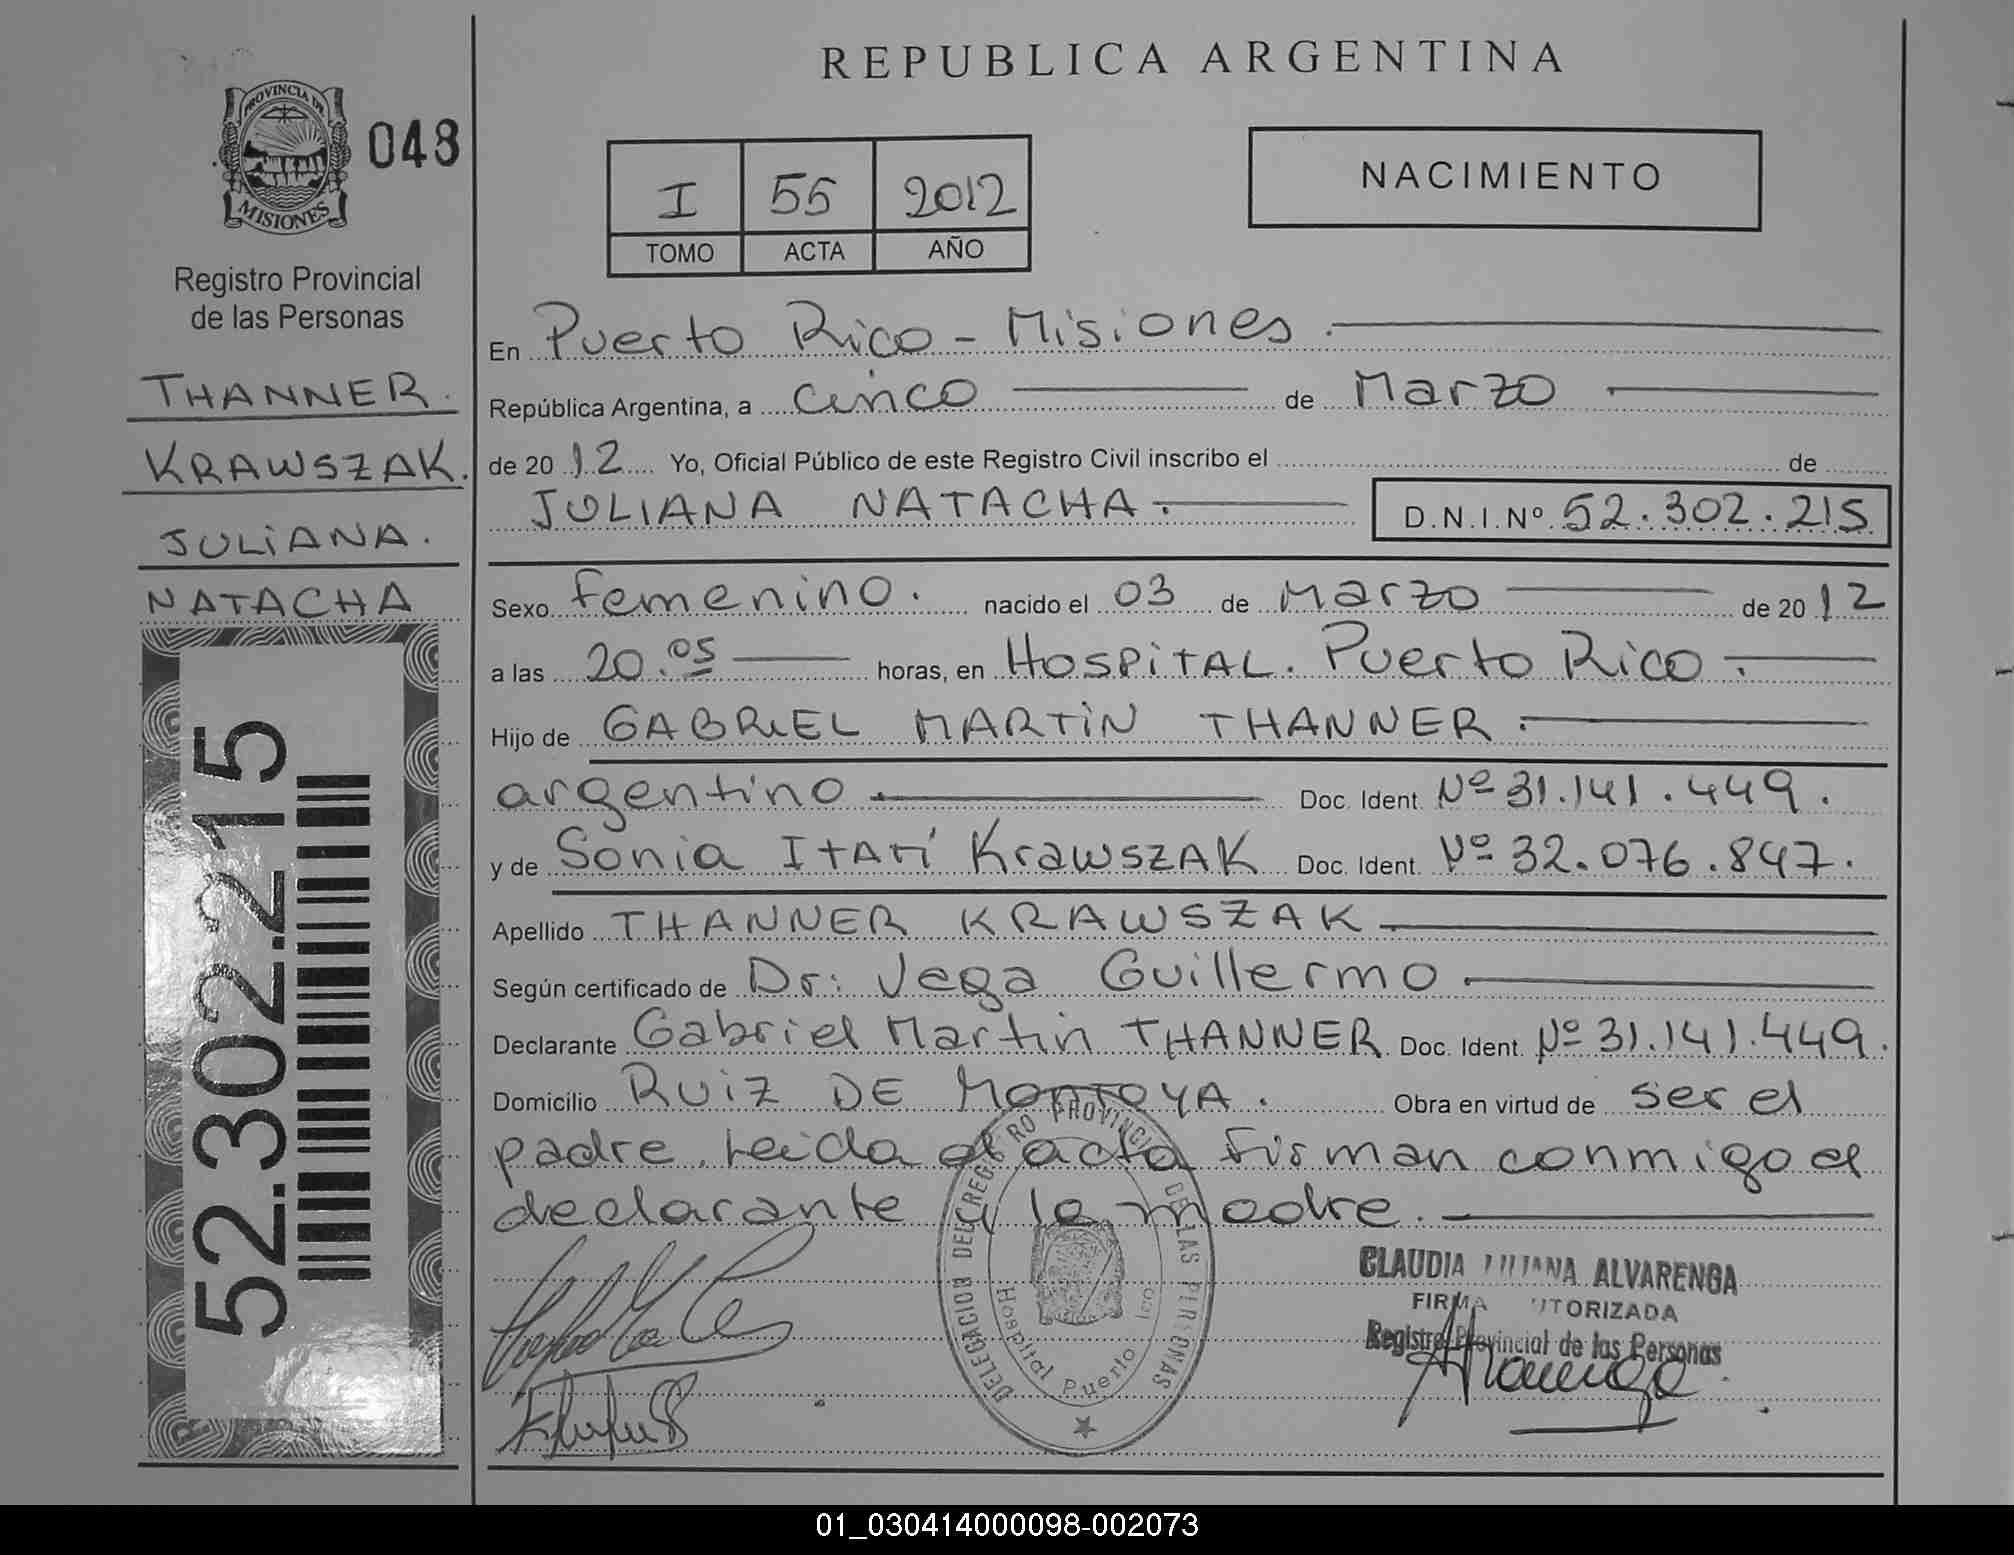 REPUBLICA ARGENTINA
PROVINCIA DE
MISIONES
048
Registro Provincial
de las Personas
THANNER.
KRAWSZAK.
JULIANA.
NATACHA
52.302.215
I 55 2012
TOMO ACTA AÑO
NACIMIENTO
En Puerto Rico - Misiones.
República Argentina, a cinco de Marzo
de 20 12 Yo, Oficial Público de este Registro Civil inscribo el de
JULIANA NATACHA. D.N.I.Nº 52.302.215
Sexo femenino. nacido el 03 de Marzo de 20 12
a las 20.05 horas, en HOSPITAL. Puerto Rico.
Hijo de GABRIEL MARTIN THANNER.
argentino. Doc. Ident. Nº 31.141.449.
y de Sonia ITATÍ KRAWSZAK Doc. Ident. Nº 32.076.847.
Apellido THANNER KRAWSZAK
Según certificado de Dr: Vega Guillermo
Declarante Gabriel Martin THANNER Doc. Ident. Nº 31.141.449.
Domicilio RUIZ DE MONTOYA. Obra en virtud de ser el
padre. Leida el acta firman conmigo el
declarante y la madre.
DELEGACION DEL REGISTRO PROVINCIAL DE LAS PERSONAS
Hospital Puerto Rico
CLAUDIA LILIANA ALVARENGA
FIRMA AUTORIZADA
Registro Provincial de las Personas
01_030414000098-002073